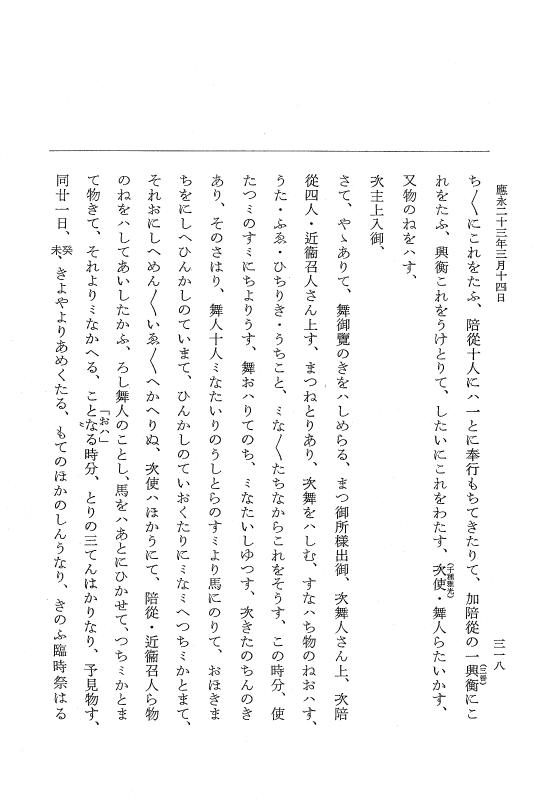 應永二十三年三月十四日
三一八
ち〳〵にこれをたふ、陪從十人にハ一とに奉行もちてきたりて、加陪從の一興衡にこ
れをたふ、興衡これをうけとりて、したいにこれをわたす、次使・舞人らたいかす、
（千種雅光）
又物のねをハす、
次主上入御、
さて、やゝありて、舞御覽のきをハしめらる、まつ御所樣出御、次舞人さん上、次陪
從四人・近衞召人さん上す、まつねとりあり、次舞をハしむ、すなハち物のねおハす、
うた・ふゑ・ひちりき・うちこと、ミな〳〵たちなからこれをそうす、この時分、使
たつミのすミにちよりうす、舞おハりてのち、ミなたいしゆつす、次きたのちんのき
あり、そのさはり、舞人十人ミなたいりのうしとらのすミより馬にのりて、おほきま
ちをにしへひんかしのていまて、ひんかしのていおくたりにミなミへつちミかとまて、
それおにしへめん〳〵いゑ〳〵へかへりぬ、次使ハほかうにて、陪從・近衞召人ら物
のねをハしてあいしたかふ、ろし舞人のことし、馬をハあとにひかせて、つちミかとま
て物きて、それよりミなかへる、ことなる時分、とりの三てんはかりなり、予見物す、
「おハ」
同廿一日、癸未、きよやよりあめくたる、もてのほかのしんうなり、きのふ臨時祭はる